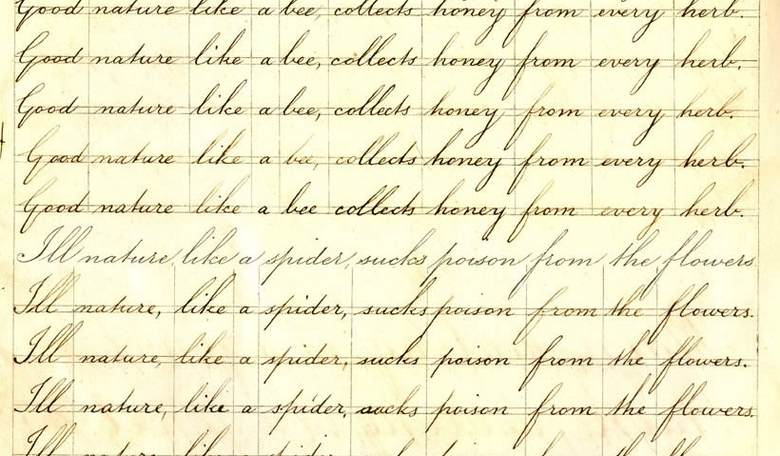 Good nature like a bee, collects honey from every herb.
Good nature like a bee, collects honey from every herb.
Good nature like a bee, collects honey from every herb.
Good nature like a bee, collects honey from every herb.
Good nature like a bee collects honey from every herb.
Ill nature, like a spider, sucks poison from the flowers
Ill nature, like a spider, sucks poison from the flowers.
Ill nature, like a spider, sucks poison from the flowers.
Ill nature, like a spider, sucks poison from the flowers.
Ill nature like a spider